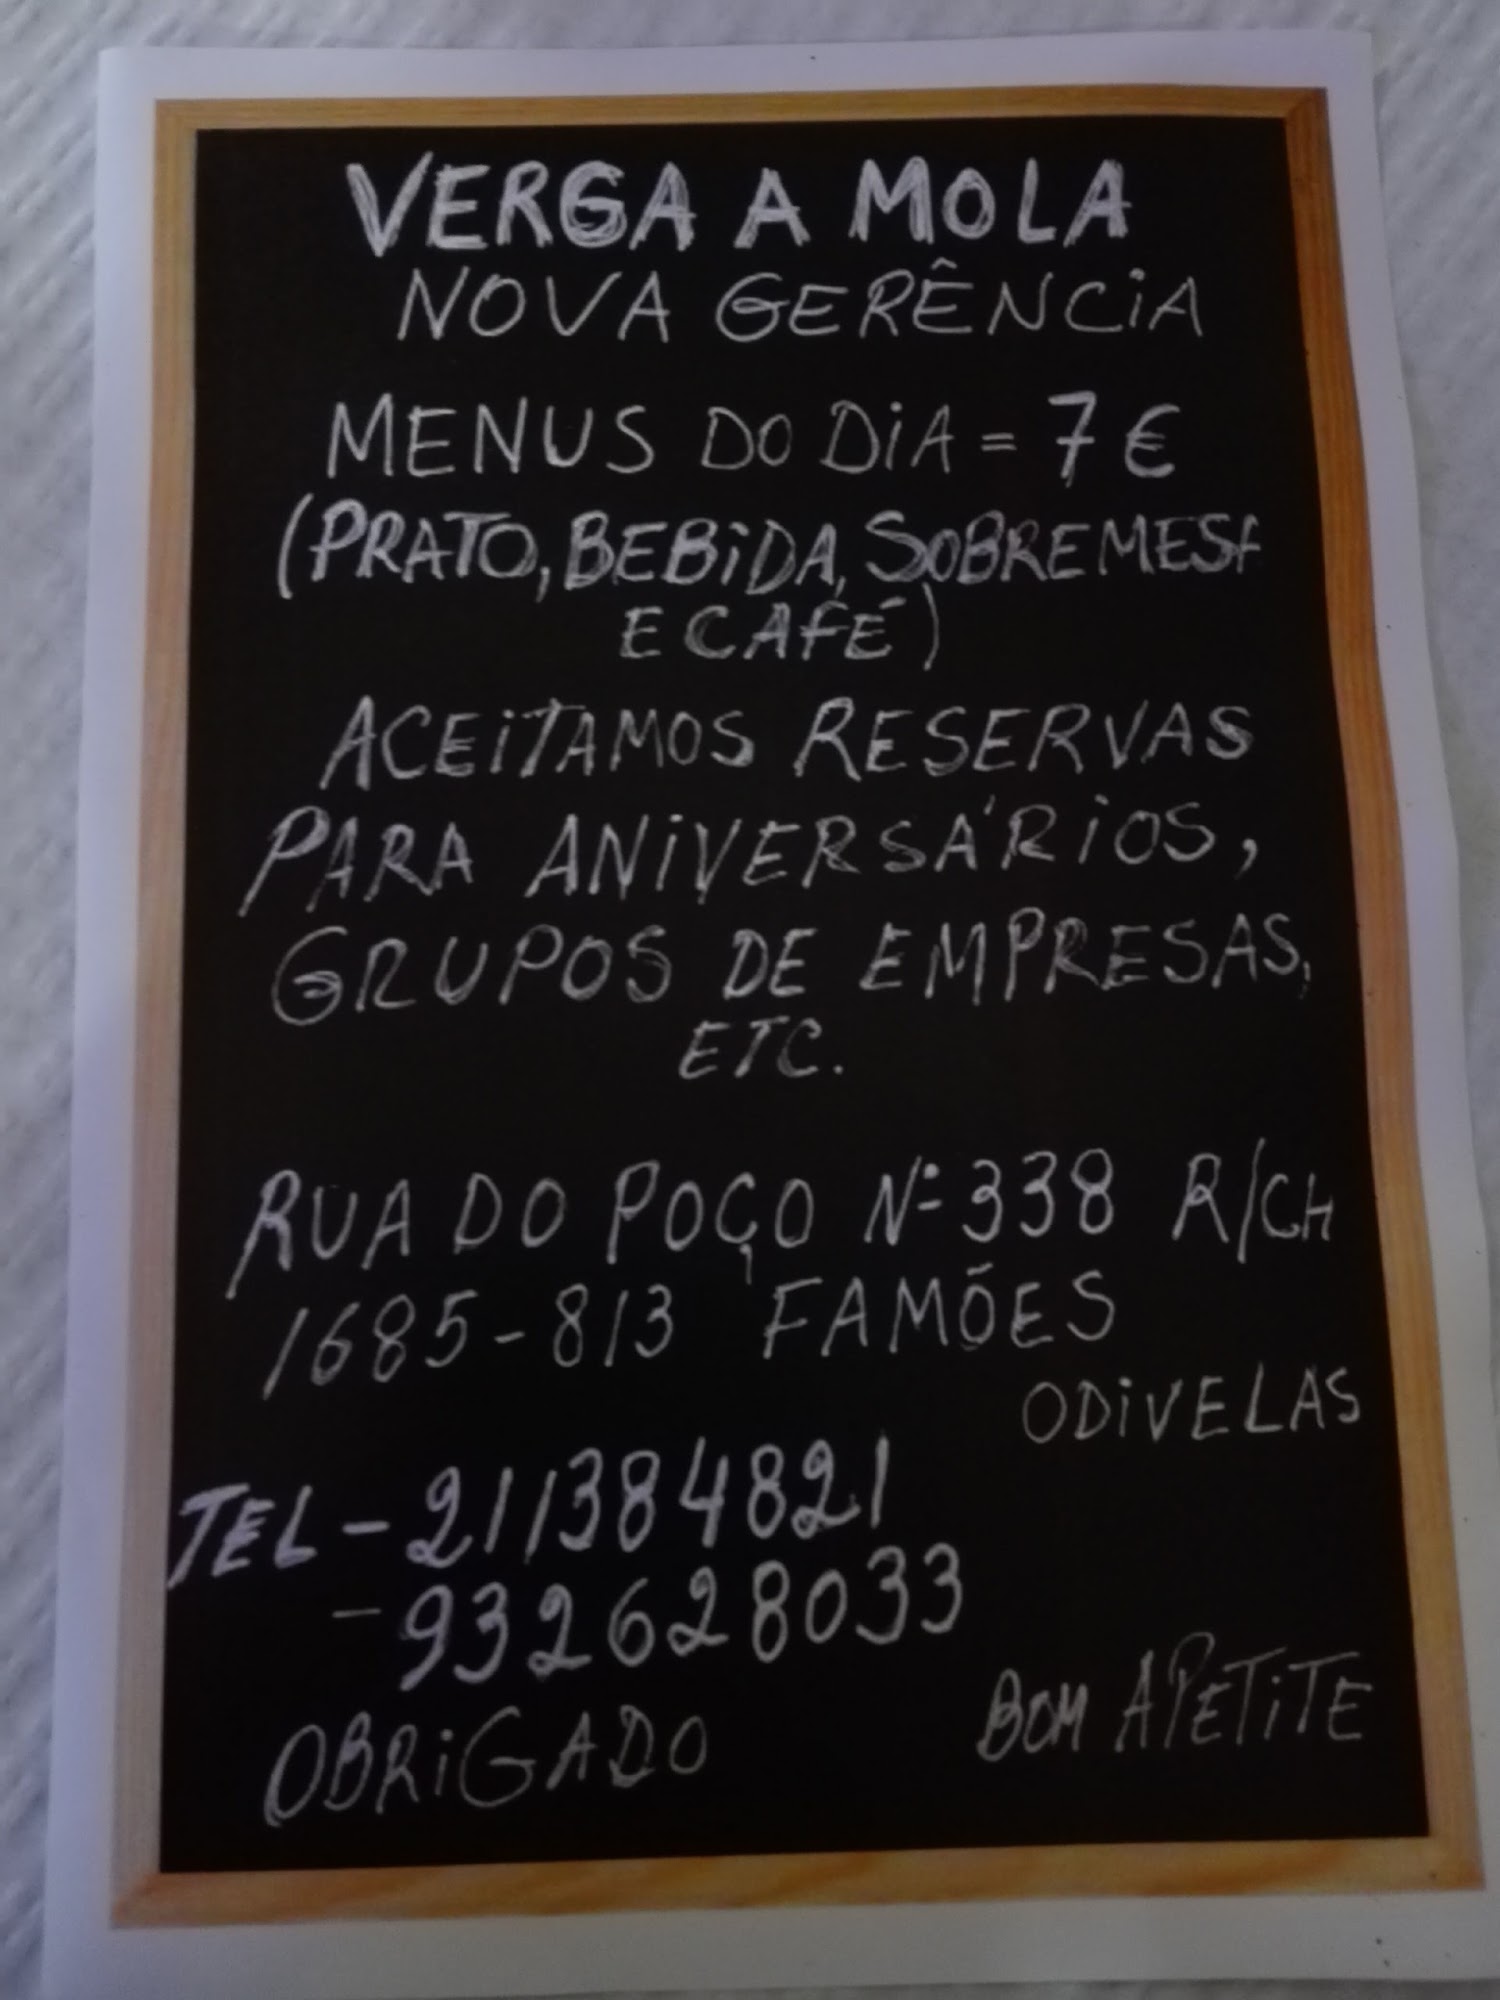 VERGA A MOLA
NOVA GERÊNCiA
MENUS DO DiA = 7 €
(PRATO, BEBiDA, SOBREMESA
E CAFÉ)
ACEiTAMOS RESERVAS
PARA ANiVERSÁRiOS,
GRUPOS DE EMPRESAS,
ETC.
RUA DO POÇO Nº 338 R/CH
1685-813 FAMÕES
ODiVELAS
TEL - 211384821
- 932628033
OBRiGADO
BOM APETiTE